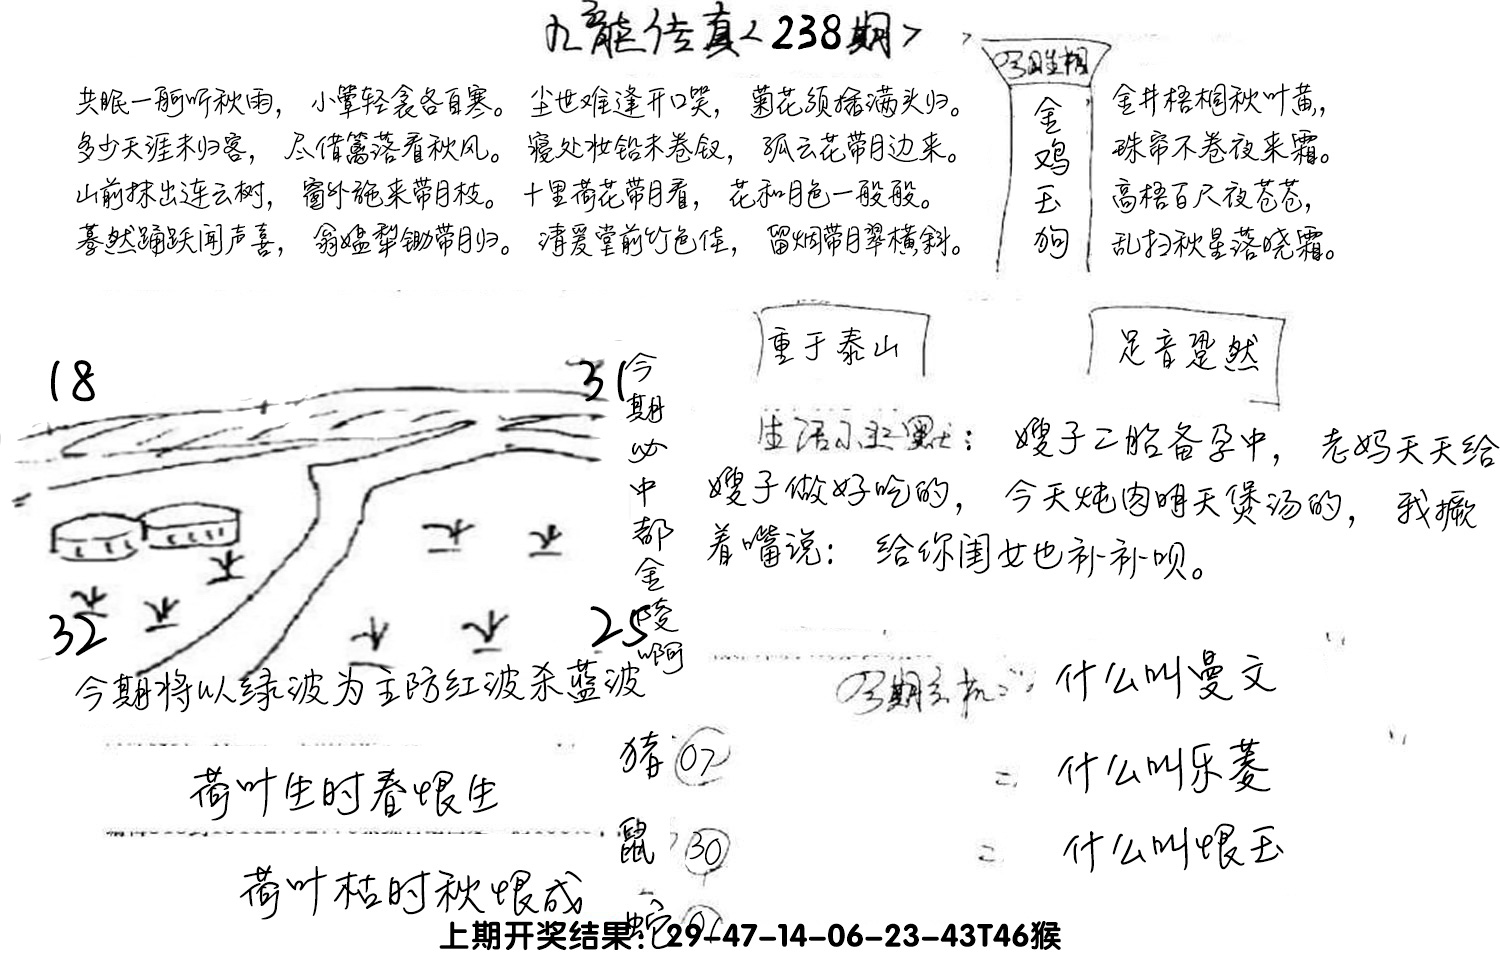 九龙传真<238期>
共眠一舸听秋雨，小簟轻衾各自寒。尘世难逢开口笑，菊花须插满头归。
多少天涯未归客，尽借篱落看秋风。寝处妆铅未卷钗，孤云花带月边来。
山前抹出连云树，窗外施来带月枝。十里荷花带月看，花和月色一般般。
蓦然踊跃闻声喜，翁媪犁锄带月归。清爱堂前竹色佳，留烟带月翠横斜。
今期生相
金鸡玉狗
金井梧桐秋叶黄，
珠帘不卷夜来霜。
高梧百尺夜苍苍，
乱扫秋星落晓霜。
重于泰山
足音跫然
18
31
32
25
今期必中都金陵啊
生活小幽默：嫂子二胎备孕中，老妈天天给
嫂子做好吃的，今天炖肉明天煲汤的，我撅
着嘴说：给你闺女也补补呗。
今期将以绿波为主防红波杀蓝波
今期玄机：什么叫曼文
=什么叫乐菱
=什么叫恨玉
荷叶生时春恨生
荷叶枯时秋恨成
猪 07
鼠 30
蛇
上期开奖结果：29-47-14-06-23-43T46猴